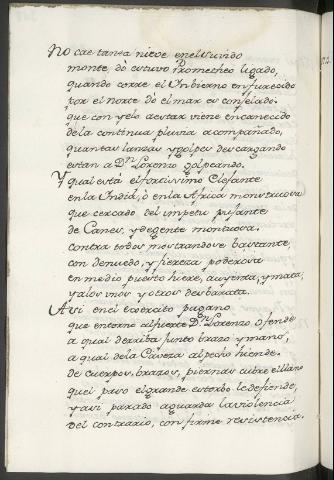 No cae tanta nieve en el subido
monte, dò estuvo Prometheo ligado,
quando corre el Inbierno enfurecido
por el norte dò el mar es conselado.
que con yelo acstar viene encanecido
de la continua pluvia acompañado,
quantas lanzas y golpes descargando
estan a Dn Lorenzo golpeando.
Y qual està el fortissimo Elefante
en la India, ò en la Africa monstruosa
que cercado del impetu pujante
de Canes, y de gente montuosa.
contra todos mostrandose bastante,
con denuedo, y fiereza poderosa
en medio puesto hiere, auyenta, y mata;
y a los unos y otros desbarata.
Asi en el exercito pagano
que en torno al fuerte Dn Lorenzo ofende
a qual derriba junto brazo y mano,
a qual de la Caveza al pecho hiende.
de cuerpos, brazos, piernas cubre el llano
quel paso el grande estorbo le defiende,
y asi parado aguarda la violencia
del contrario, con firme resistencia.